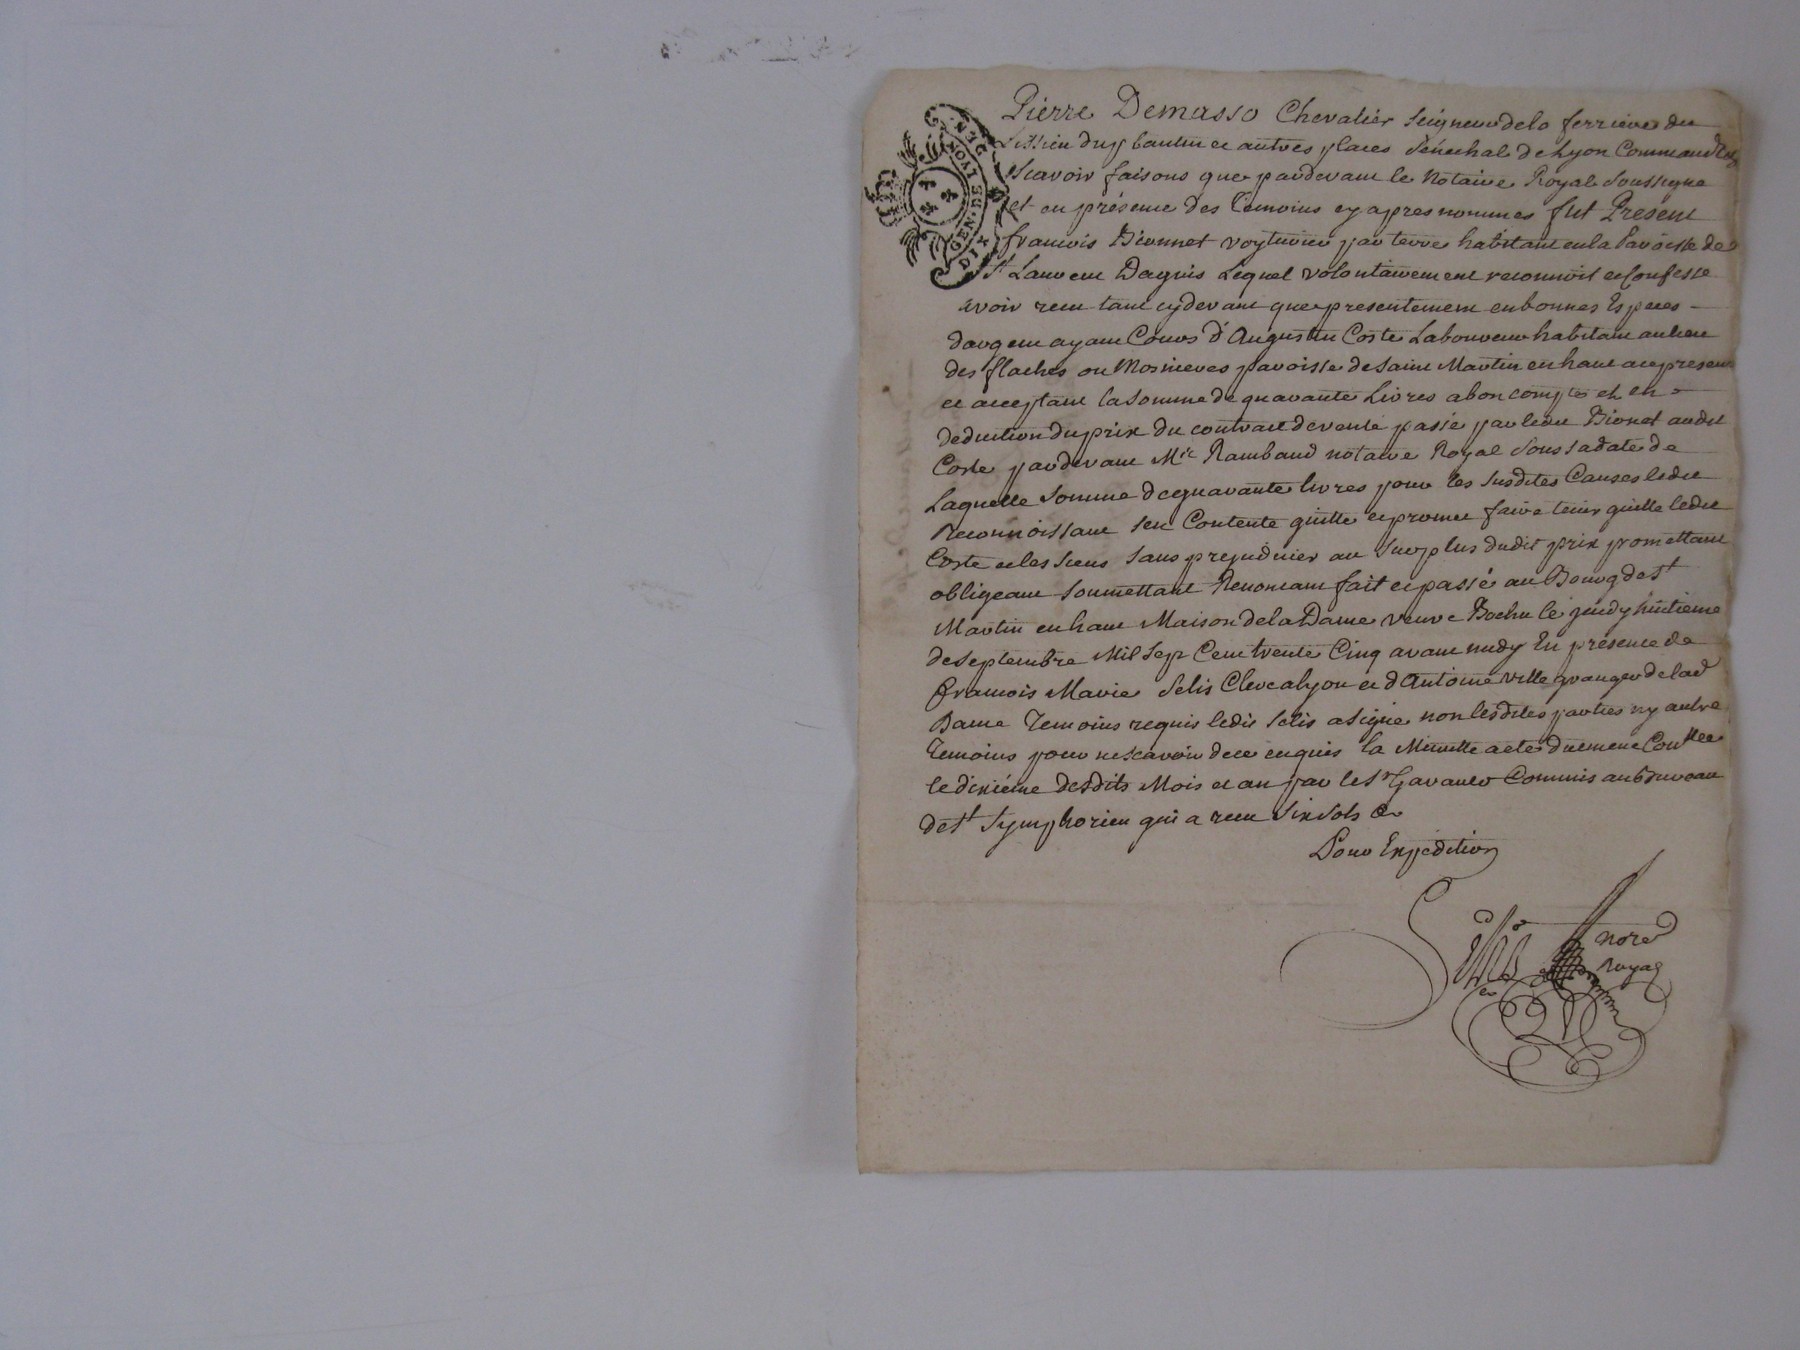 Pierre Demasso Chevalier Seigneur de la ferriere du
Lissieu du plantin et autres places Senechal de Lyon Commandt
Scavoir faisons que pardevant le Notaire Royal Soussigne
et en présence des Temoins cy apres nommes fut Present
francois Bionnet voyturier par terre habitant en la Paroisse de
St Laurent Dagnis Lequel volontairement reconnoit et Confesse
avoir recu tant cy devant que presentement en bonnes Especes
dargent ayant Cours d'Augustin Coste Laboureur habitant au lieu
des flaches ou Mosnieres paroisse de Saint Martin en haut ace present
et acceptant la Somme de quarante Livres a bon compte et en
deduction du prix du contract de vente passé par ledit Bionet audit
Coste pardevant Me Rambaud notaire Royal Sous Sa date de
Laquelle Somme de quarante livres pour les Susdites Causes ledit
Reconnoissant Sen Contente quitte et promet faire tenir quitte ledit
Coste et les Siens Sans prejudicier au Surplus dudit prix promettant
obligeant Soumettant Renoncant fait et passé au Bourg de St
Martin en haut Maison de la Dame veuve Bochu le jeudy huitieme
de Septembre Mil Sept Cent trente Cinq avant midy En présence de
francois Marie Selis Clerc a lyon et d'Antoine ville granger de lad
Dame Temoins requis ledit Selis a Signé non lesdites parties ny autre
Temoins pour ne Scavoir de ce enquis la Minutte a eté duement Conllée
le dixiéme desdits Mois et an par le Sr Commis au Bureau
de St Symphorien qui a recu Six Sols &
Pour Expedition
nore
Royal
GEN. DE LYON
DIX DEN.